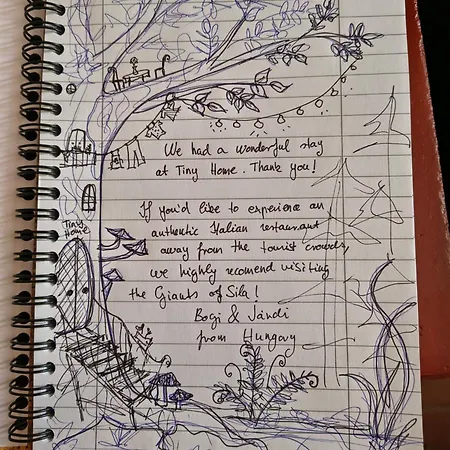 We had a wonderful stay
at Tiny Home. Thank you!
If you'd like to experience an
authentic Italian restaurant
away from the tourist crowds,
we highly recomend visiting
the Giants of Sila!
Bogi & Jándi
from Hungary
Tiny
Home